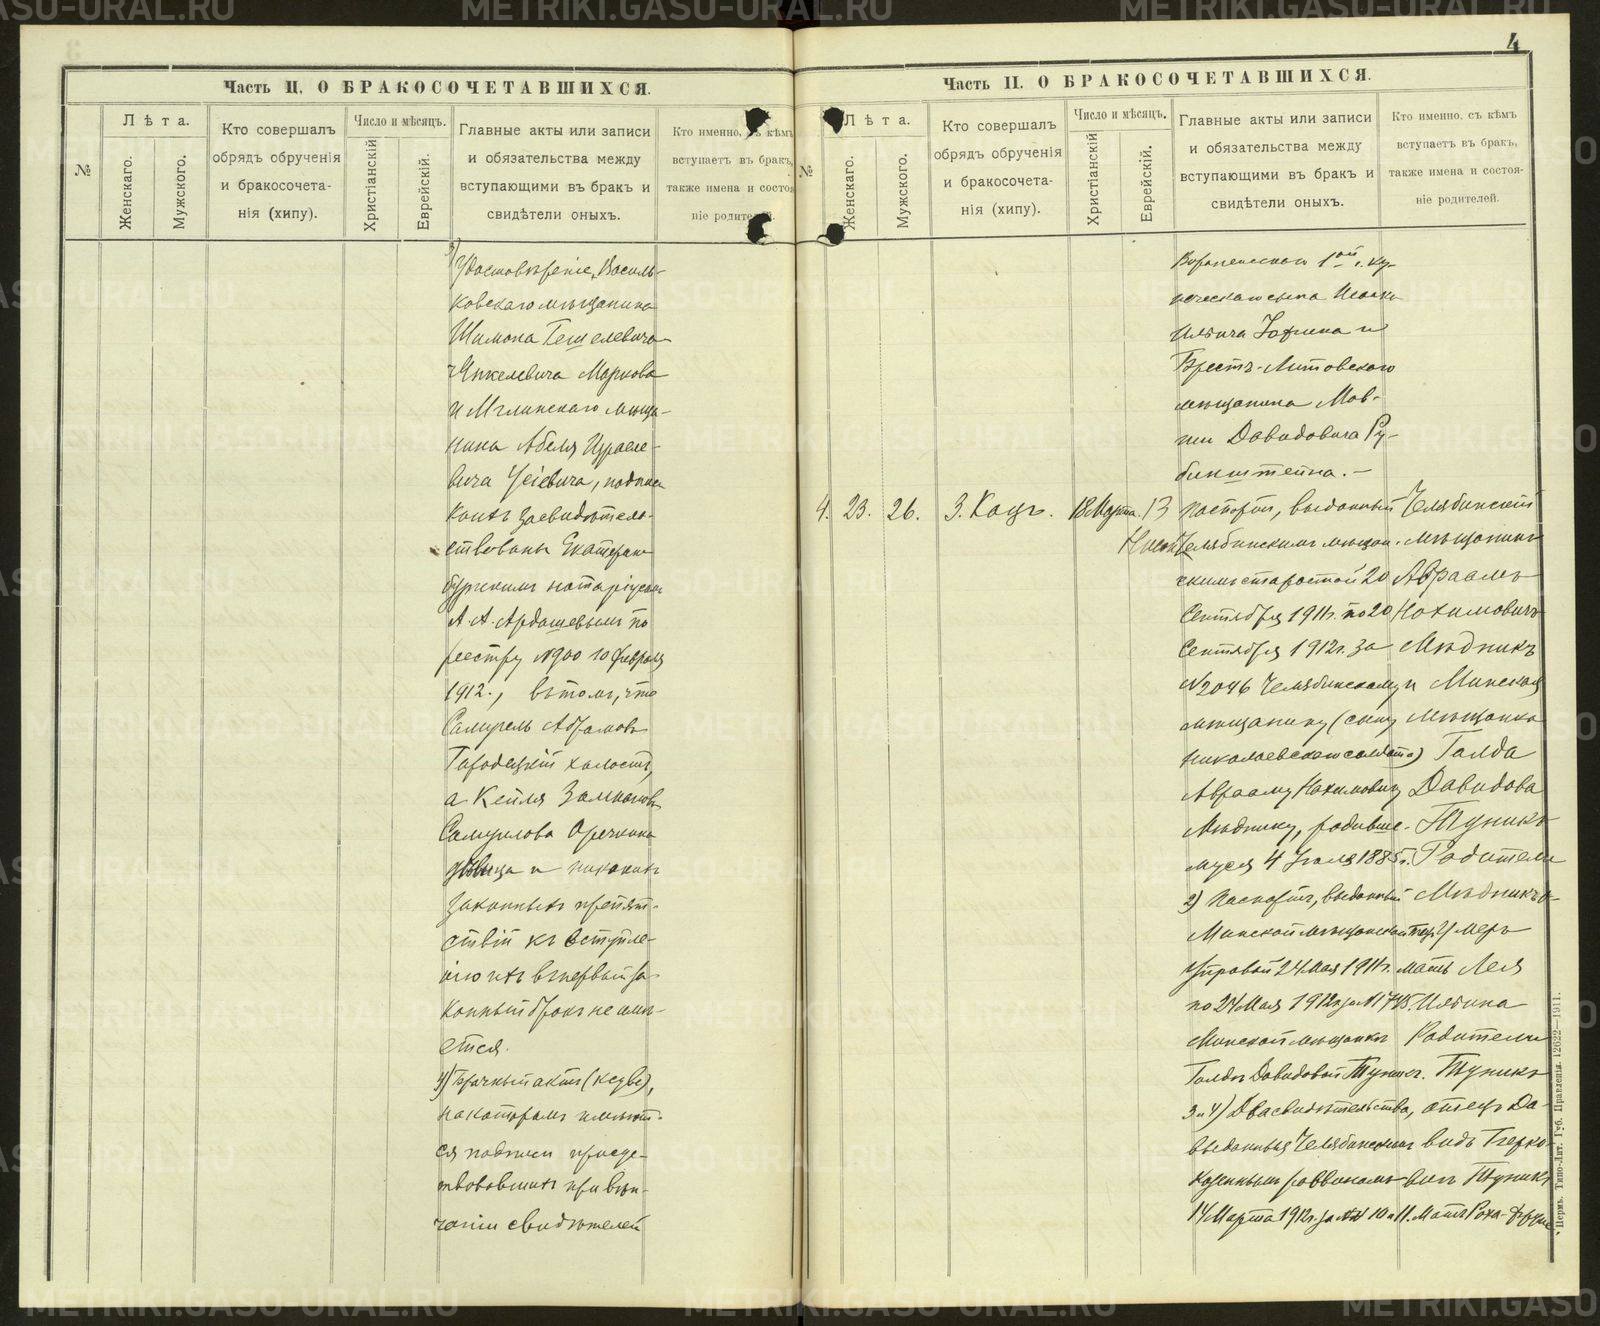 4
Часть II. О БРАКОСОЧЕТАВШИХСЯ.
№
Лѣта.
Женскаго.
Мужского.
Кто совершалъ
обрядъ обрученія
и бракосочета-
нія (хипу).
Число и мѣсяцъ.
Христіанскій
Еврейскій.
Главные акты или записи
и обязательства между
вступающими въ бракъ и
свидѣтели оныхъ.
Кто именно, съ кѣмъ
вступаетъ въ бракъ,
также имена и состоя
ніе родителей.
3)
Удостовѣреніе, Василь-
ковскаго мѣщанина
Шимона Гешелевича-
Янкелевича Маркова
и Мглинскаго мѣща-
нина Абеля Израеле-
вича, подписи
коихъ засвидѣтель-
ствованы Екатерин
бургскимъ нотаріусомъ
А. А. Ардашевымъ по
реестру №900 10 февраля
1912., въ томъ, что
Самуель Абрамовъ
Городецкій холостъ,
а Кейля
Самуилова
дѣвица и никакихъ
законныхъ препят-
ствій къ вступле-
нію ихъ въ первый за-
конный бракъ не имѣ-
ется.
4) Брачный актъ (ксуве),
на которомъ имѣют-
ся подписи присут-
ствовавшихъ при вѣн-
чаніи свидѣтелей
Часть II. О БРАКОСОЧЕТАВШИХСЯ.
№
Лѣта.
Женскаго.
Мужского.
Кто совершалъ
обрядъ обрученія
и бракосочета-
нія (хипу).
Число и мѣсяцъ.
Христіанскій
Еврейскій.
Главные акты или записи
и обязательства между
вступающими въ бракъ и
свидѣтели оныхъ.
Кто именно, съ кѣмъ
вступаетъ въ бракъ,
также имена и состоя-
ніе родителей.
1ой г. ку-
печескаго сына Исаака
Ильича и
Брестъ-Литовскаго
мѣщанина Мов-
ши Давидовича Ру-
бинштейна. —
4. 23. 26. З. Кацъ. 18 Марта. 13
Нисонъ
Паспортъ, выданный
Челябинскимъ мѣщан.
скимъ старостой 20
Сентября 1911г. по 20
Сентября 1912г. за
№2046 Челябинскому
мѣщанину (сыну
Николаевскаго солдата)
Аврааму Нахимовичу
Мѣднику, родивше-
муся 4 Іюля 1885г.
2) Паспортъ, выданный
Минской мѣщанской
Управой 24 Мая 1911г.
по 24 Мая 1912г. за №1745
Минской мѣщанкѣ
Голдѣ Давидовой Туникъ.
3 и 4) Два свидѣтельства,
выданныя Челябинскимъ
казеннымъ раввиномъ
14 Марта 1912г. за №№ 10 и 11.
Челябинскій
мѣщанинъ
Авраамъ
Нохимовичъ
Мѣдникъ
и Минская
мѣщанка
Голда
Давидова
Туникъ
Родители
Мѣдникъ
умеръ
мать Лея
Ильина
Родители
Туникъ
отецъ Да-
видъ Берко-
вичъ Туникъ
Мать Роха-
Пермь. Типо-Лит. Губ. Правленія. 12622—1911.
METRIKI.GASO-URAL.RU